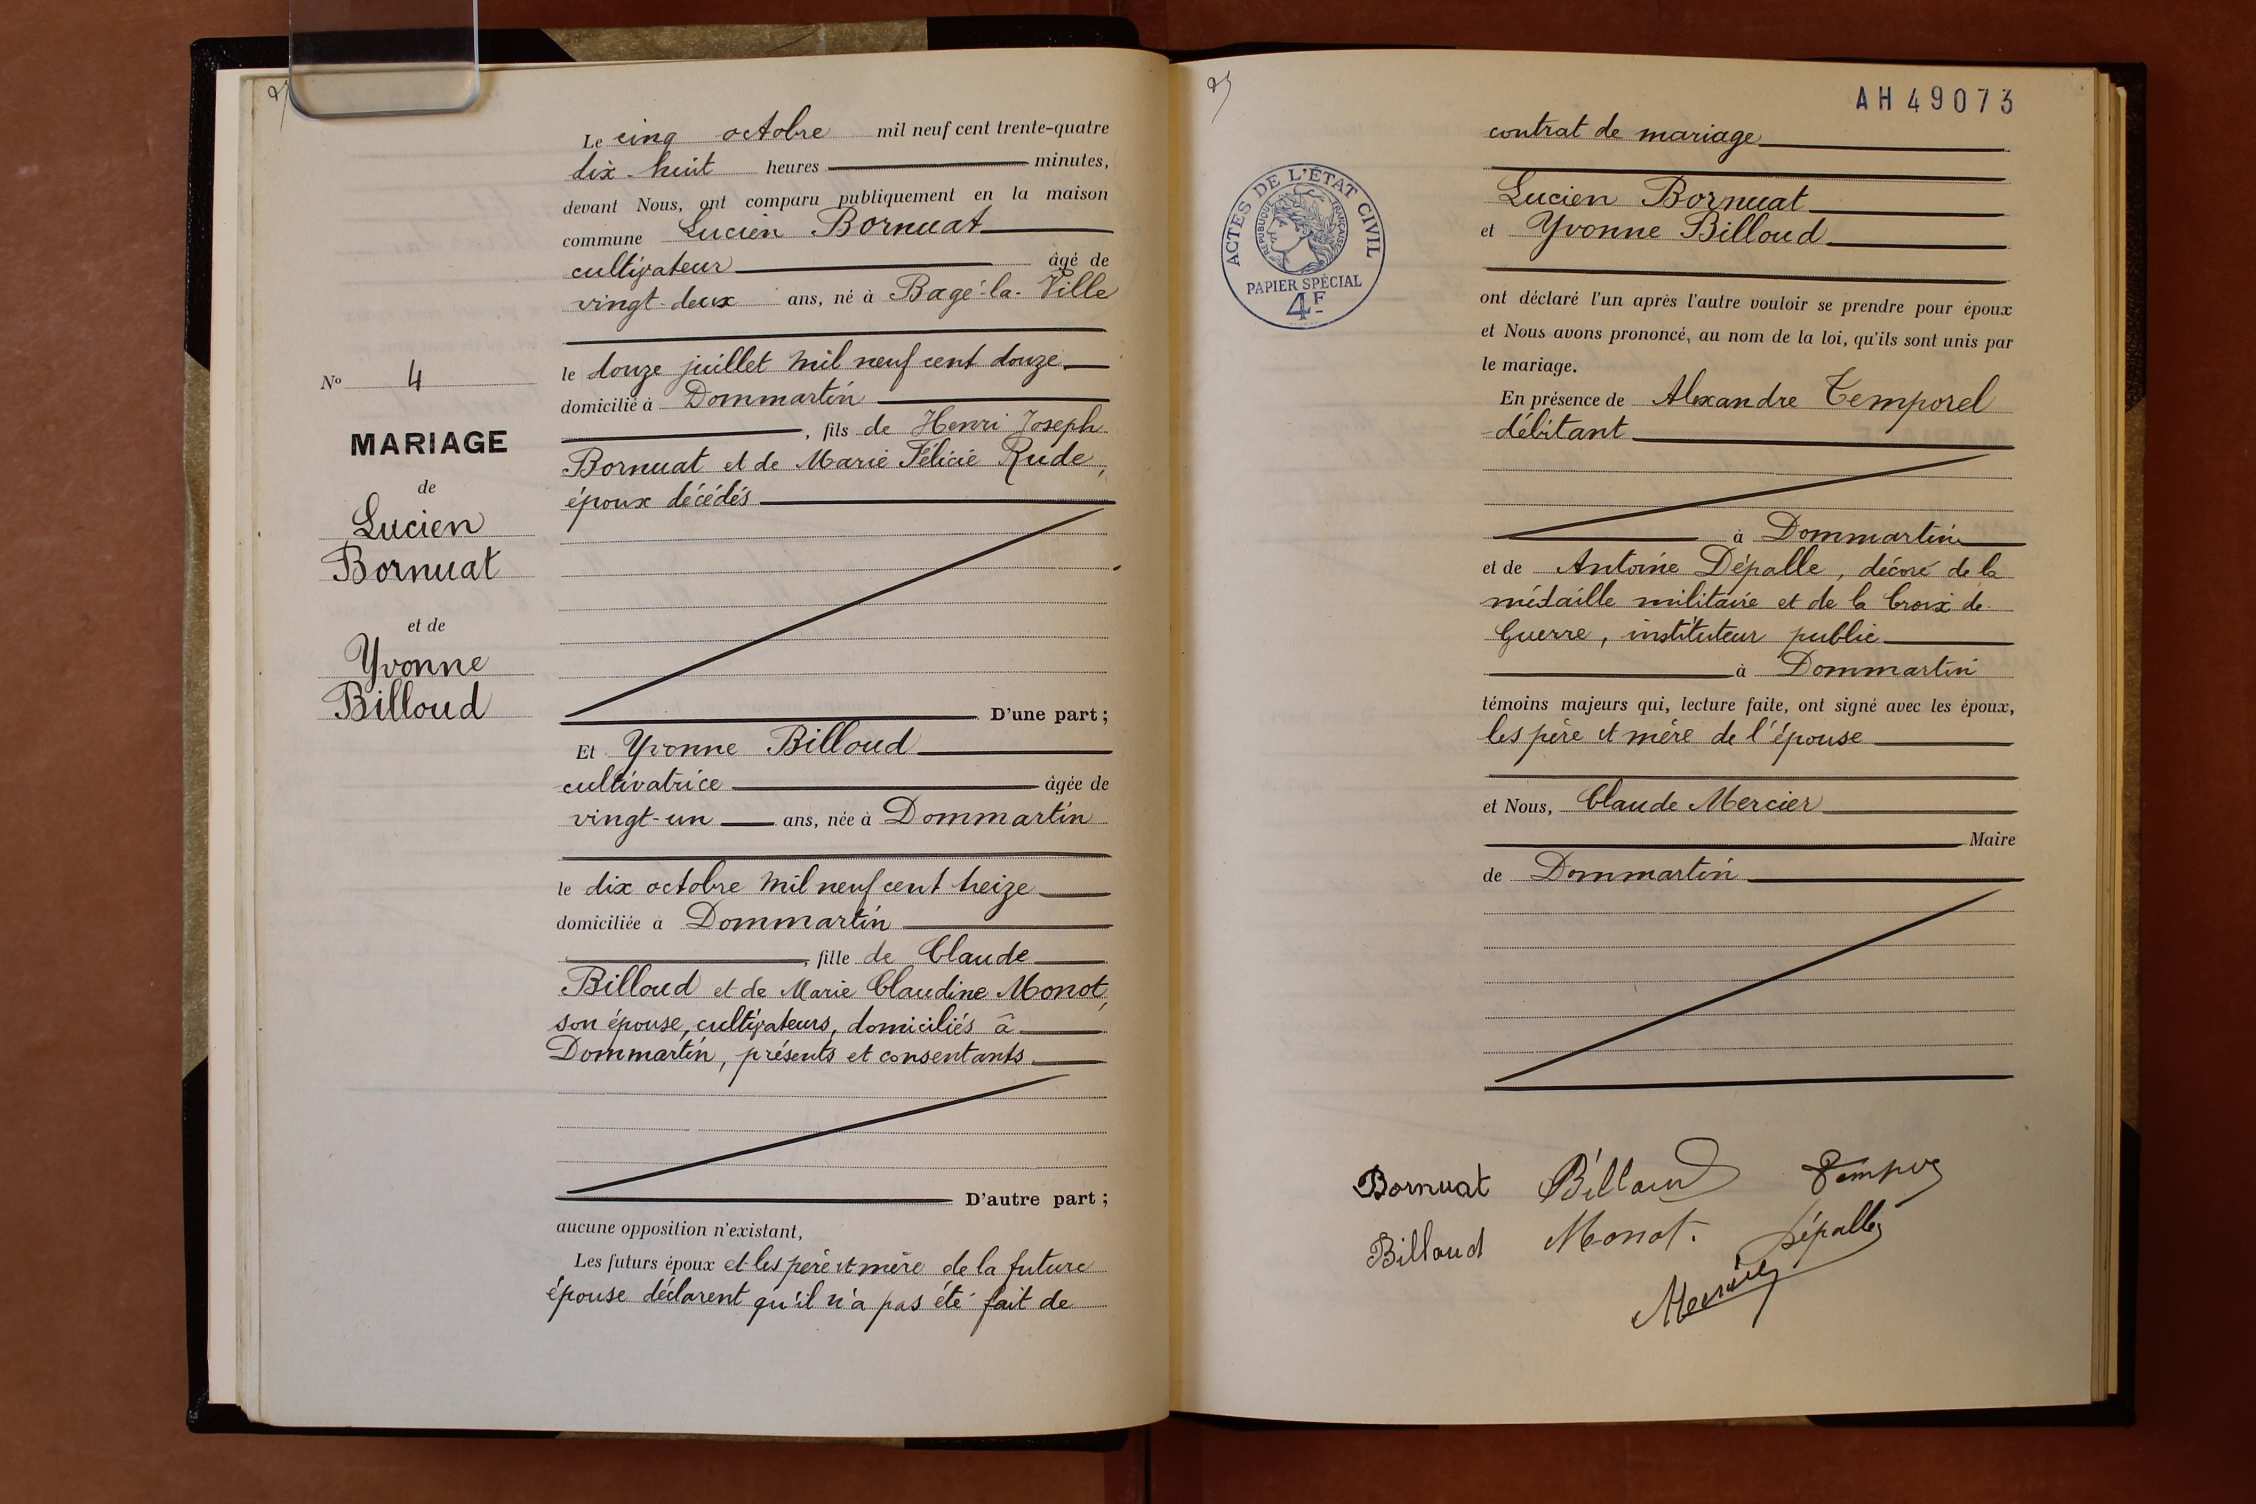 Le cinq octobre mil neuf cent trente-quatre
dix-huit heures minutes,
devant Nous, ont comparu publiquement en la maison
commune Lucien Bornuat
cultivateur âgé de
vingt-deux ans, né à Bagé-la-Ville
le douze juillet mil neuf cent douze
domicilié à Dommartin
, fils de Henri Joseph
Bornuat et de Marie Félicie Rude,
époux décédés
D'une part ;
Nº 4
MARIAGE
de
Lucien
Bornuat
et de
Yvonne
Billoud
Et Yvonne Billoud
cultivatrice âgée de
vingt-un ans, née à Dommartin
le dix octobre mil neuf cent treize
domiciliée à Dommartin
, fille de Claude
Billoud et de Marie Claudine Monot,
son épouse, cultivateurs, domiciliés à
Dommartin, présents et consentants
D'autre part ;
aucune opposition n'existant,
Les futurs époux et les père et mère de la future
épouse déclarent qu'il n'a pas été fait de
AH49073
contrat de mariage
ACTES DE L'ÉTAT CIVIL
RÉPUBLIQUE FRANÇAISE
PAPIER SPÉCIAL
4F
Lucien Bornuat
et Yvonne Billoud
ont déclaré l'un après l'autre vouloir se prendre pour époux
et Nous avons prononcé, au nom de la loi, qu'ils sont unis par
le mariage.
En présence de Alexandre Temporel
débitant
à Dommartin
et de Antoine Dépalle, décoré de la
médaille militaire et de la Croix de
Guerre, instituteur public
à Dommartin
témoins majeurs qui, lecture faite, ont signé avec les époux,
les père et mère de l'épouse
et Nous, Claude Mercier
Maire
de Dommartin
Bornuat Billoud
Billoud Monot. Dépalle
Mercier